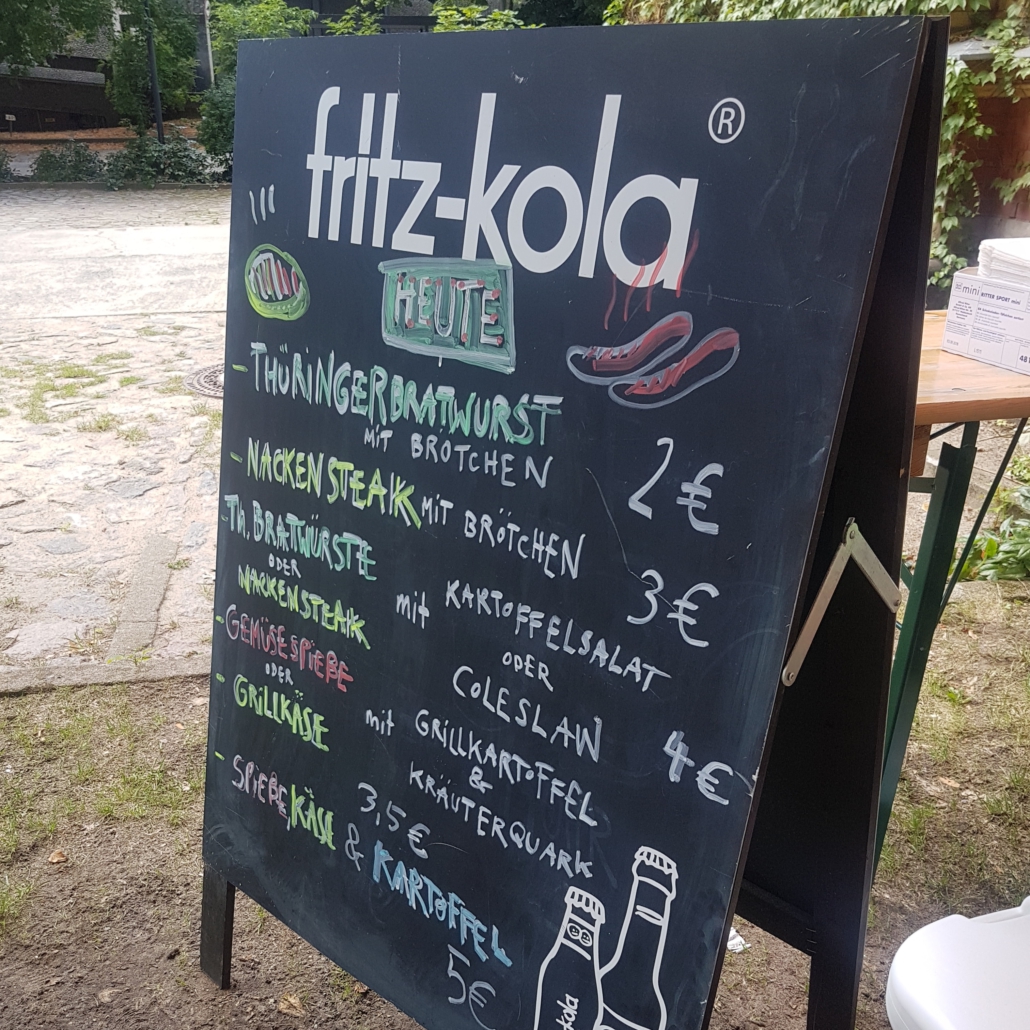 fritz-kola ®
HEUTE
- THÜRINGERBRATWURST
MIT BRÖTCHEN 2€
- NACKENSTEAK MIT BRÖTCHEN 3€
- Th. BRATWÜRSTE
ODER
NACKENSTEAK
mit KARTOFFELSALAT
ODER
COLESLAW 4€
- GEMÜSESPIEßE
ODER
- GRILLKÄSE
mit GRILLKARTOFFEL
&
KRÄUTERQUARK
3,5€
- SPIEßE, KÄSE & KARTOFFEL
5€
kola
mini RITTER SPORT mini
48